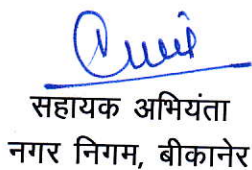 सहायक अभियंता
नगर निगम, बीकानेर